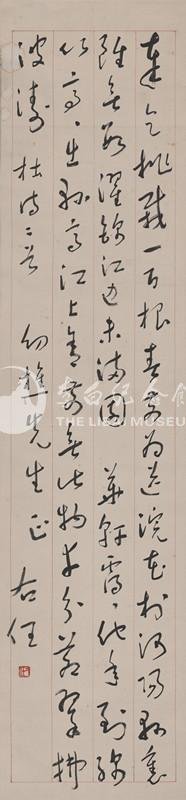 奉乞桃栽一百根春前為送浣花村河陽縣裏
雖無數濯錦江邊未滿園 華軒藹〻他年到綿
竹亭〻出縣高江上舍前無此物幸分蒼翠拂
波濤 杜詩二首 幼 先生正 右任
李白纪念馆
THE LIBAI MUSEUM